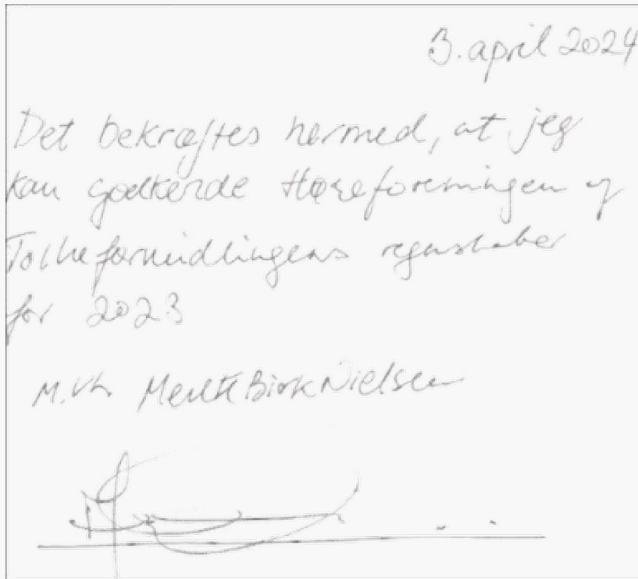 3. april 2024
Det bekræftes hermed, at jeg
kan godkende Høreforeningen og
Tolkeformidlingens regnskaber
for 2023
M.vh Merete Birk Nielsen